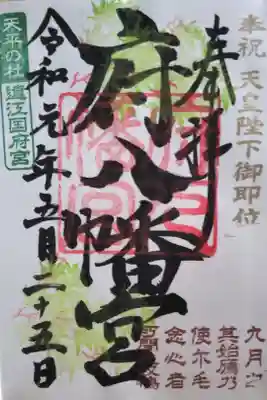 奉祝 天皇陛下御即位
奉拝
府八幡宮
令和元年五月二十五日
天平の杜 遠江国府宮
九月之
其始鴈乃
使尓毛
念心者
所聞来鴨